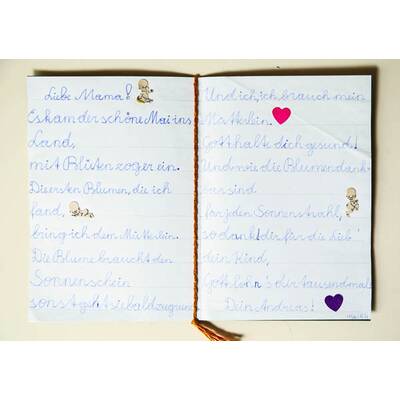 Liebe Mama!
Es kam der schöne Mai ins
Land,
mit Blüten zog er ein.
Die ersten Blumen, die ich
fand,
bring ich dem Mütterlein.
Die Blume braucht den
Sonnenschein
sonst geht sie bald zugrund
Und ich, ich brauch mein
Mütterlein.
Gott halte dich gesund!
Und wie die Blumen dank-
bar sind
für jden Sonnenstrahl,
so dankt dir für die Lieb'
dein Kind,
Gott lohn's dir tausendmal.
Dein Andreas!